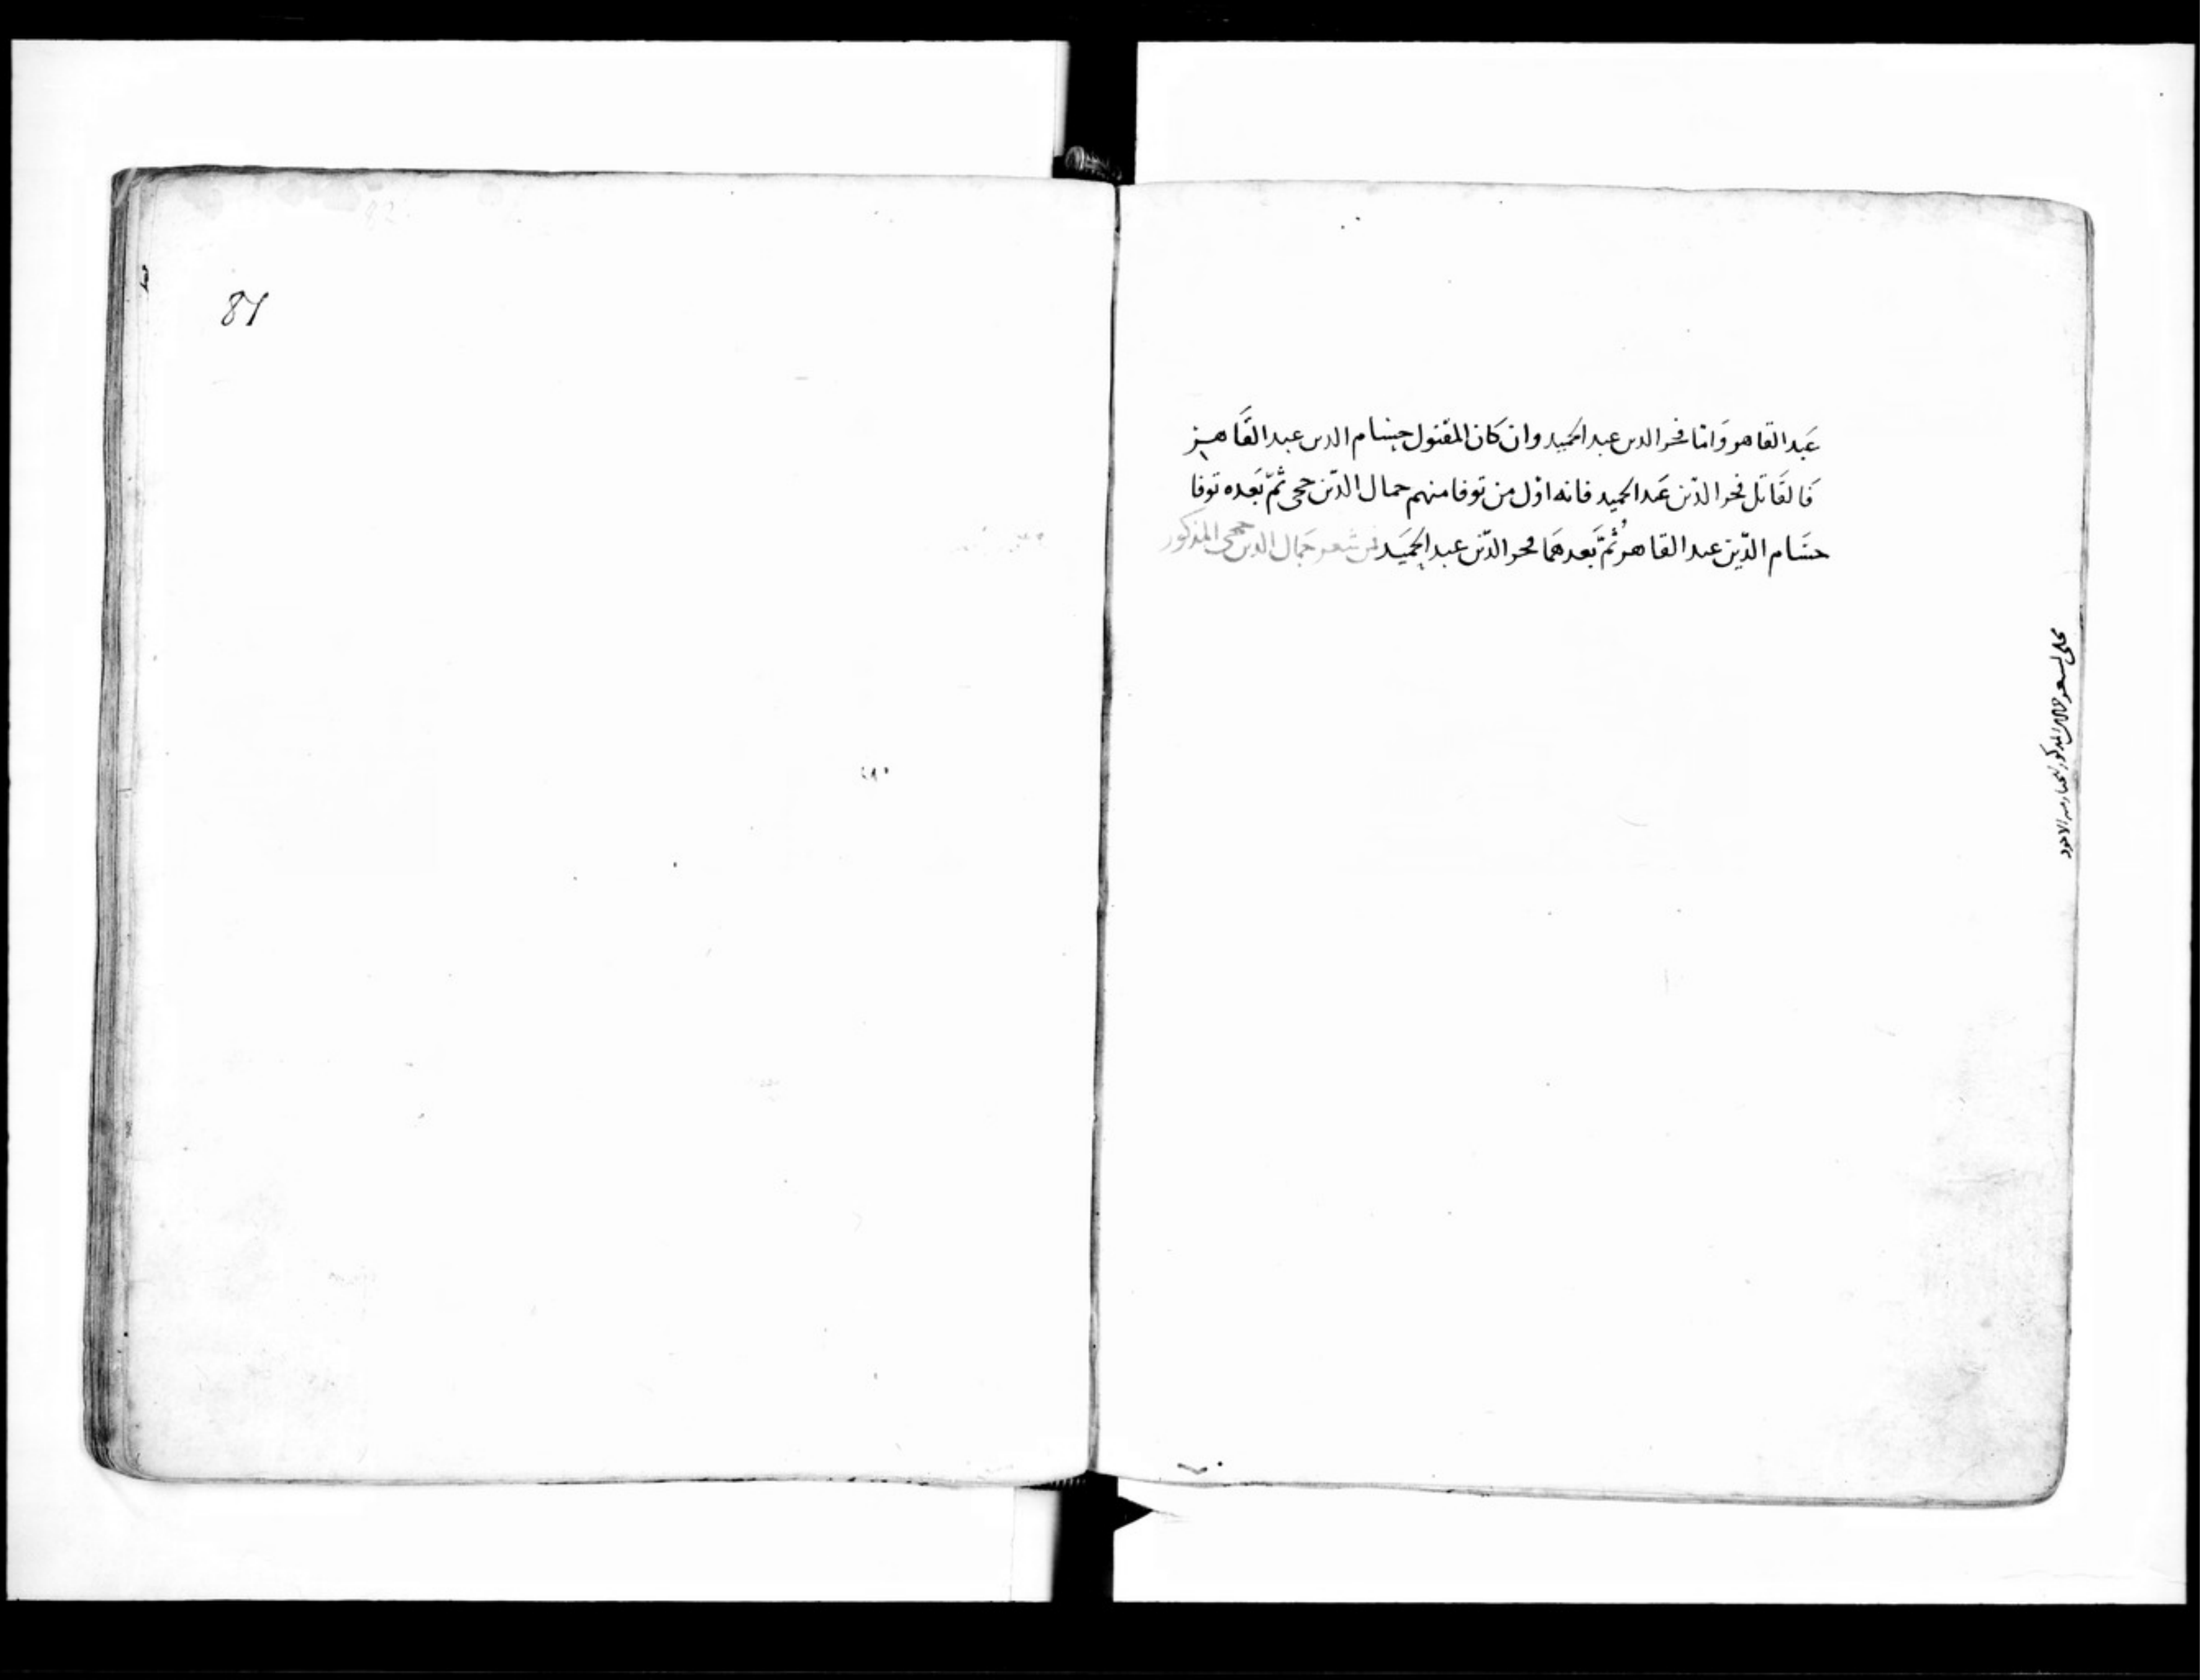 عبد القاهر واما فخر الدين عبد الحميد وان كان المقتول حسام الدين عبد القاهر
فالقاتل فخر الدين عبد الحميد فانه اول من توفا منهم جمال الدين حجى ثم بعده توفا
حسام الدين عبد القاهر ثم بعدهما فخر الدين عبد الحميد فمن شعر جمال الدين حجى المذكور
المذكور
81